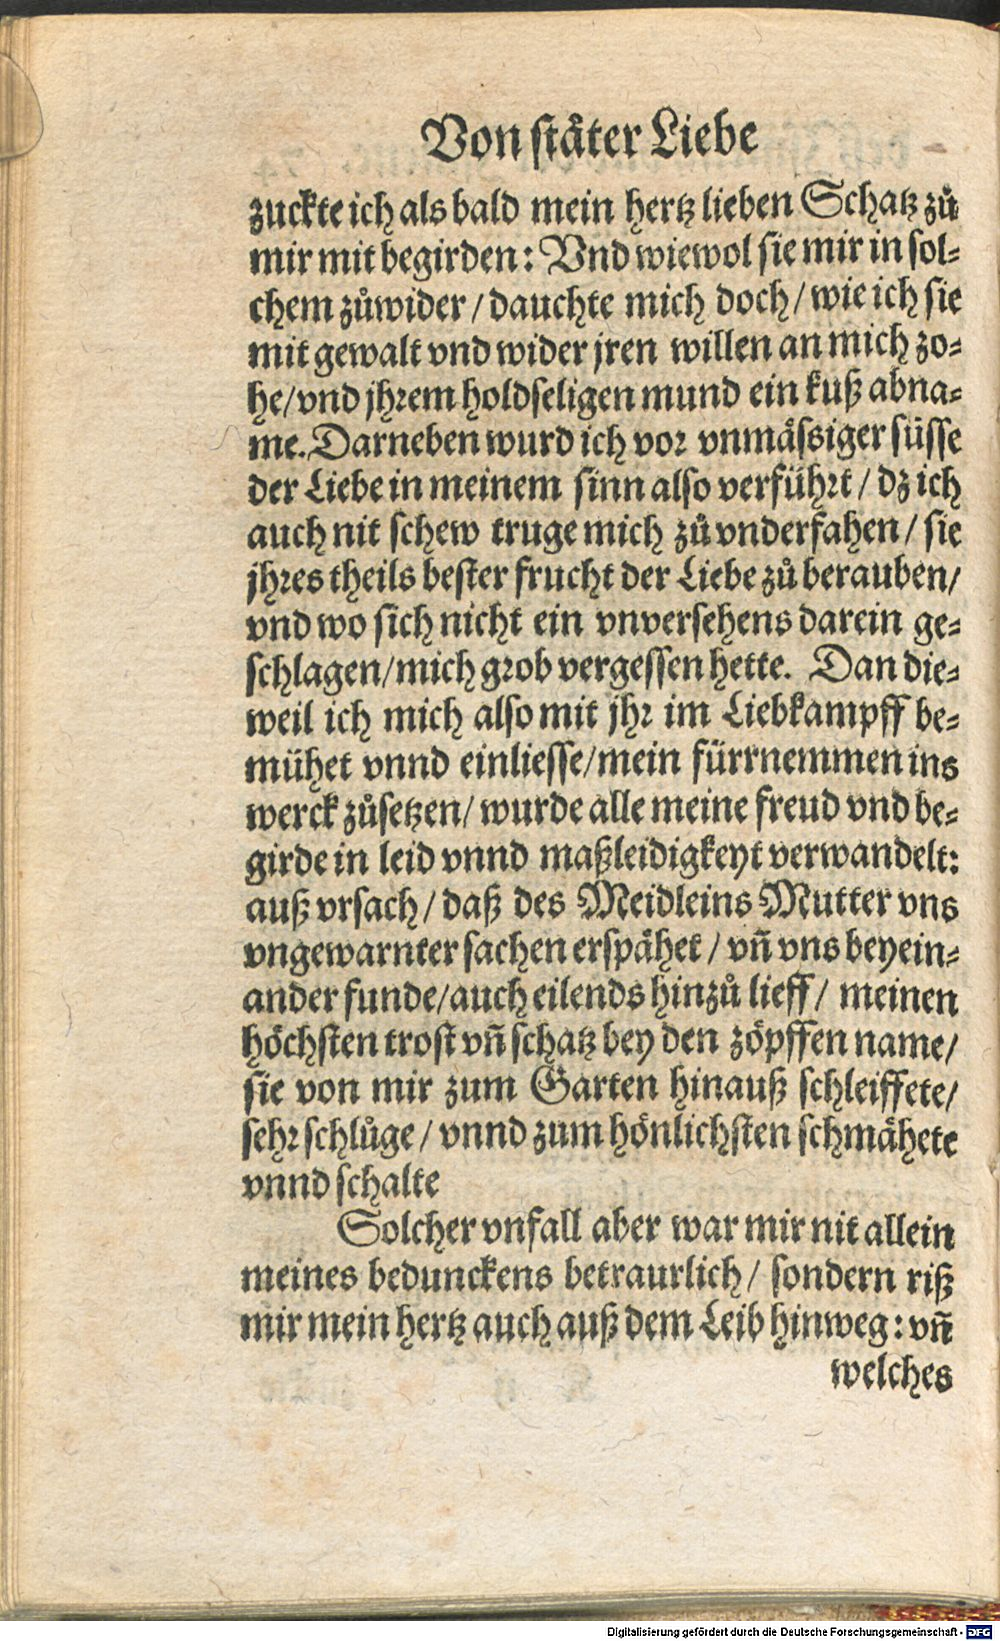 Von stäter Liebe
zuckte ich als bald mein hertz lieben Schatz zů
mir mit begirden: Vnd wiewol sie mir in sol-
chem zůwider / dauchte mich doch / wie ich sie
mit gewalt vnd wider jren willen an mich zo-
he/vnd jhrem holdseligen mund ein kuß abna-
me. Darneben wurd ich vor vnmässiger süsse
der Liebe in meinem sinn also verführt / dz ich
auch nit schew truge mich zů vnderfahen / sie
jhres theils bester frucht der Liebe zů berauben/
vnd wo sich nicht ein vnversehens darein ge-
schlagen/mich grob vergessen hette. Dan die-
weil ich mich also mit jhr im Liebkampff be-
mühet vnnd einliesse/mein fürrnemmen ins
werck zůsetzen/ wurde alle meine freud vnd be-
girde in leid vnnd maßleidigkeyt verwandelt:
auß vrsach / daß des Meidleins Mutter vns
vngewarnter sachen erspähet / vñ vns beyein-
ander funde/auch eilends hinzů lieff / meinen
höchsten trost vñ schatz bey den zöpffen name/
sie von mir zum Garten hinauß schleiffete/
sehr schlůge / vnnd zum hönlichsten schmähete
vnnd schalte
Solcher vnfall aber war mir nit allein
meines bedunckens betraurlich / sondern riß
mir mein hertz auch auß dem Leib hinweg: vñ
welches
Digitalisierung gefördert durch die Deutsche Forschungsgemeinschaft - DFG